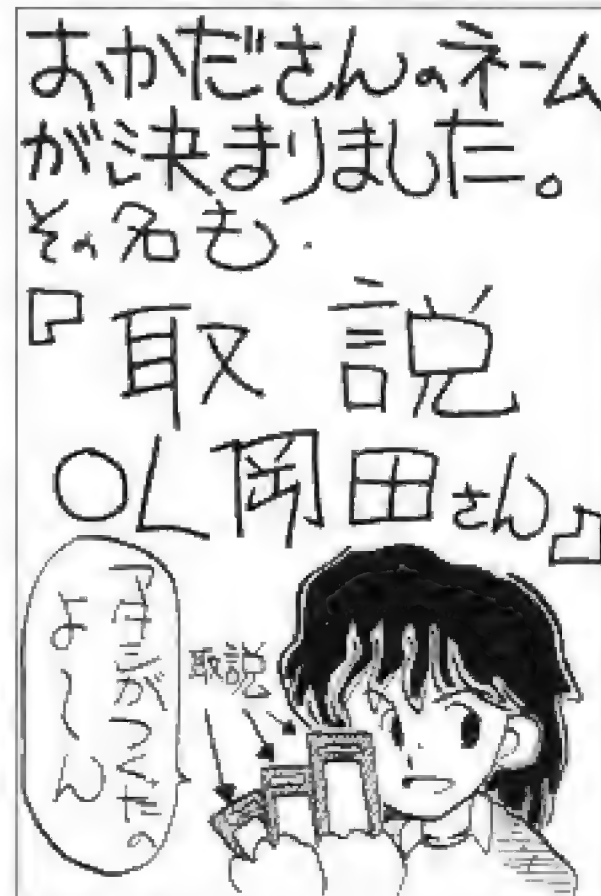 おかださんのネーム
が決まりました。
その名も.
『取説
OL岡田さん』
取説
アタシがつくたの
よ〜ん